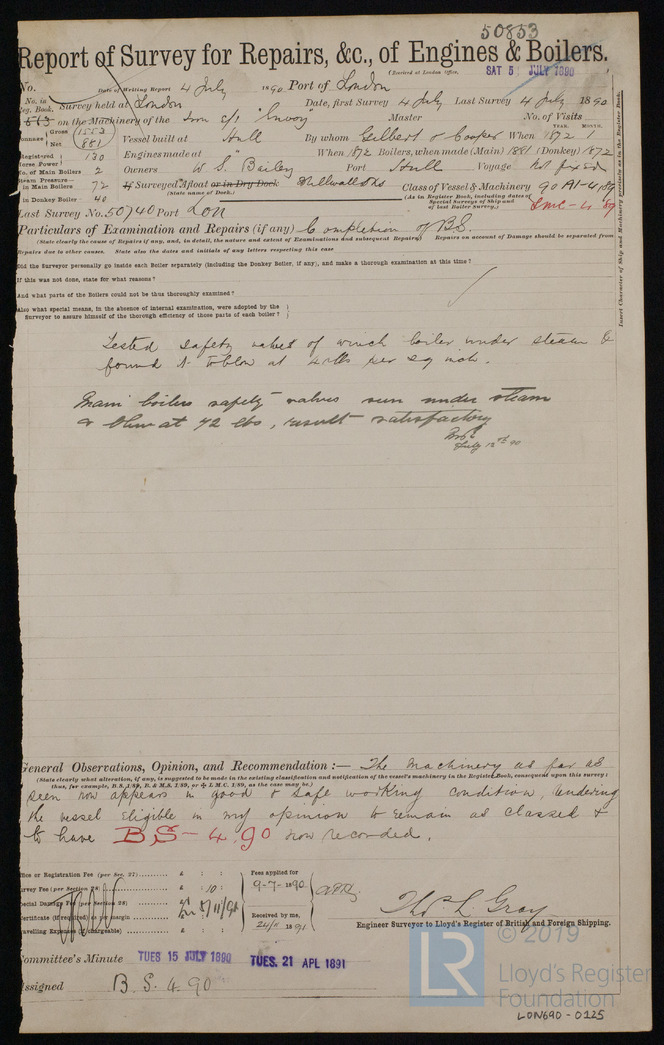 50853
Report of Survey for Repairs, &c., of Engines & Boilers.
(Received at London Office, SAT 5 JULY 1890
No. Date of Writing Report 4 July 1890 Port of London
No. in Reg. Book. Survey held at London Date, first Survey 4 July Last Survey 4 July 1890
on the Machinery of the Iron s/s "Envoy" Master No. of Visits
Tonnage { Gross 1553 Net 881 Vessel built at Hull By whom Gilbert & Cooper When YEAR. 1872 MONTH. 1
Registered Horse Power } 130 Engines made at " When 1872 Boilers, when made (Main) 1881 (Donkey) 1872
No. of Main Boilers 2 Owners W. S. Bailey Port Hull Voyage Not fixed
Steam Pressure— in Main Boilers 72 If Surveyed Afloat or in Dry Dock Millwall Dks Class of Vessel & Machinery 90A1-4,89
(State name of Dock.) (As in Register Book, including dates of Special Surveys of Ship and of last Boiler Survey.) LMC-4 89
in Donkey Boiler 40
Last Survey No. 50740 Port Lon
Particulars of Examination and Repairs (if any) Completion of BS.
(State clearly the cause of Repairs if any, and, in detail, the nature and extent of Examinations and subsequent Repairs) Repairs on account of Damage should be separated from
Repairs due to other causes. State also the dates and initials of any letters respecting this case
Did the Surveyor personally go inside each Boiler separately (including the Donkey Boiler, if any), and make a thorough examination at this time?
If this was not done, state for what reasons?
And what parts of the Boilers could not be thus thoroughly examined?
Also what special means, in the absence of internal examination, were adopted by the
Surveyor to assure himself of the thorough efficiency of those parts of each boiler?
Tested safety valves of winch boiler under steam &
found it to blow at 40 lbs per sq inch.
Main boilers safety valves seen under steam
& blew at 72 lbs, result satisfactory
July 12th 90
General Observations, Opinion, and Recommendation:— The machinery as far as
(State clearly what alteration, if any, is suggested to be made in the existing classification and notification of the vessel's machinery in the Register Book, consequent upon this survey:
thus, for example, B.S. 1/89, B. & M.S. 1/89, or L.M.C. 1/89, as the case may be.)
seen now appears in good & safe working condition, rendering
the vessel eligible in my opinion to remain as classed &
to have BS-4.90 now recorded.
Office or Registration Fee (per Sec. 27) £ : : Fees applied for
Survey Fee (per Section 28) £ : 10 : 9-7-1890
Special Damage Fee (per Section 28) £ : :
Certificate (if required) as per margin : : Received by me,
Travelling Expenses (if chargeable) £ : : 24/4 1891
Thos L. Gray
Engineer Surveyor to Lloyd's Register of British and Foreign Shipping.
Committee's Minute TUES 15 JULY 1890 TUES. 21 APL 1891
Assigned B.S. 4.90
Insert Character of Ship and Machinery precisely as in the Register Book.
© 2019
LR Lloyd's Register
Foundation
LON690-0125